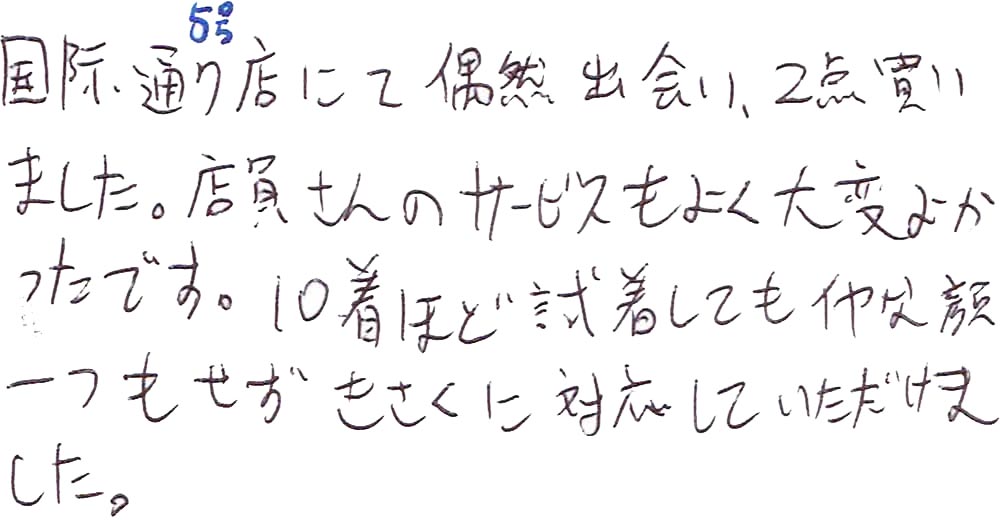 5号
国際通り店にて偶然出会い、2点買い
ました。店員さんのサービスもよく大変よか
ったです。10着ほど試着してもイヤな顔
一つもせずきさくに対応していただけま
した。